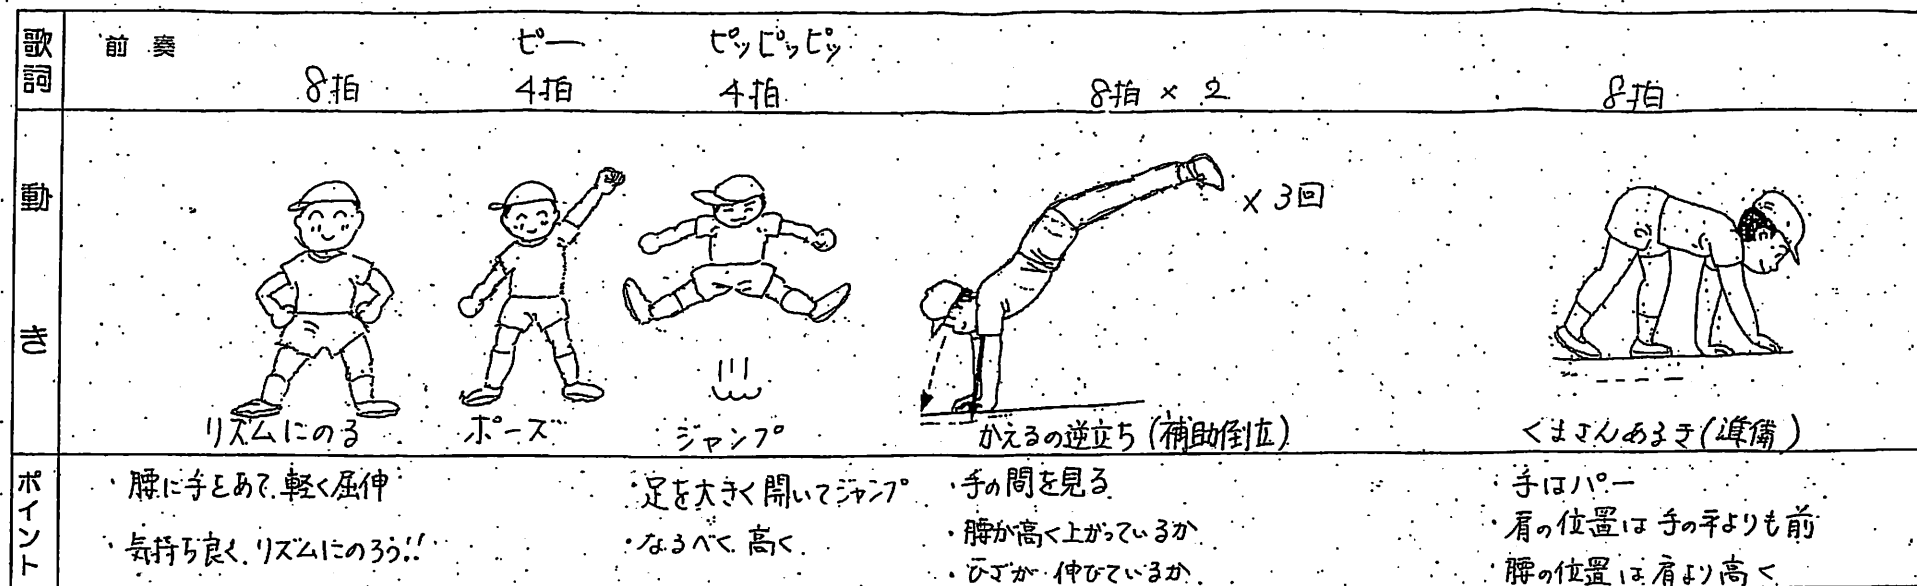 歌詞
前奏
ピー
ピッピッピッ
8拍
4拍
4拍
8拍 × 2
8拍
動き
× 3回
2
リズムにのる
ポーズ
ジャンプ
かえるの逆立ち(補助倒立)
くまさんあるき(準備)
ポイント
・腰に手をあて、軽く屈伸
・気持ち良く、リズムにのろう!!
・足を大きく開いてジャンプ
・なるべく高く
・手の間を見る
・腰が高く上がっているか
・ひざが伸びているか
・手はパー
・肩の位置は手の平よりも前
腰の位置は肩より高く